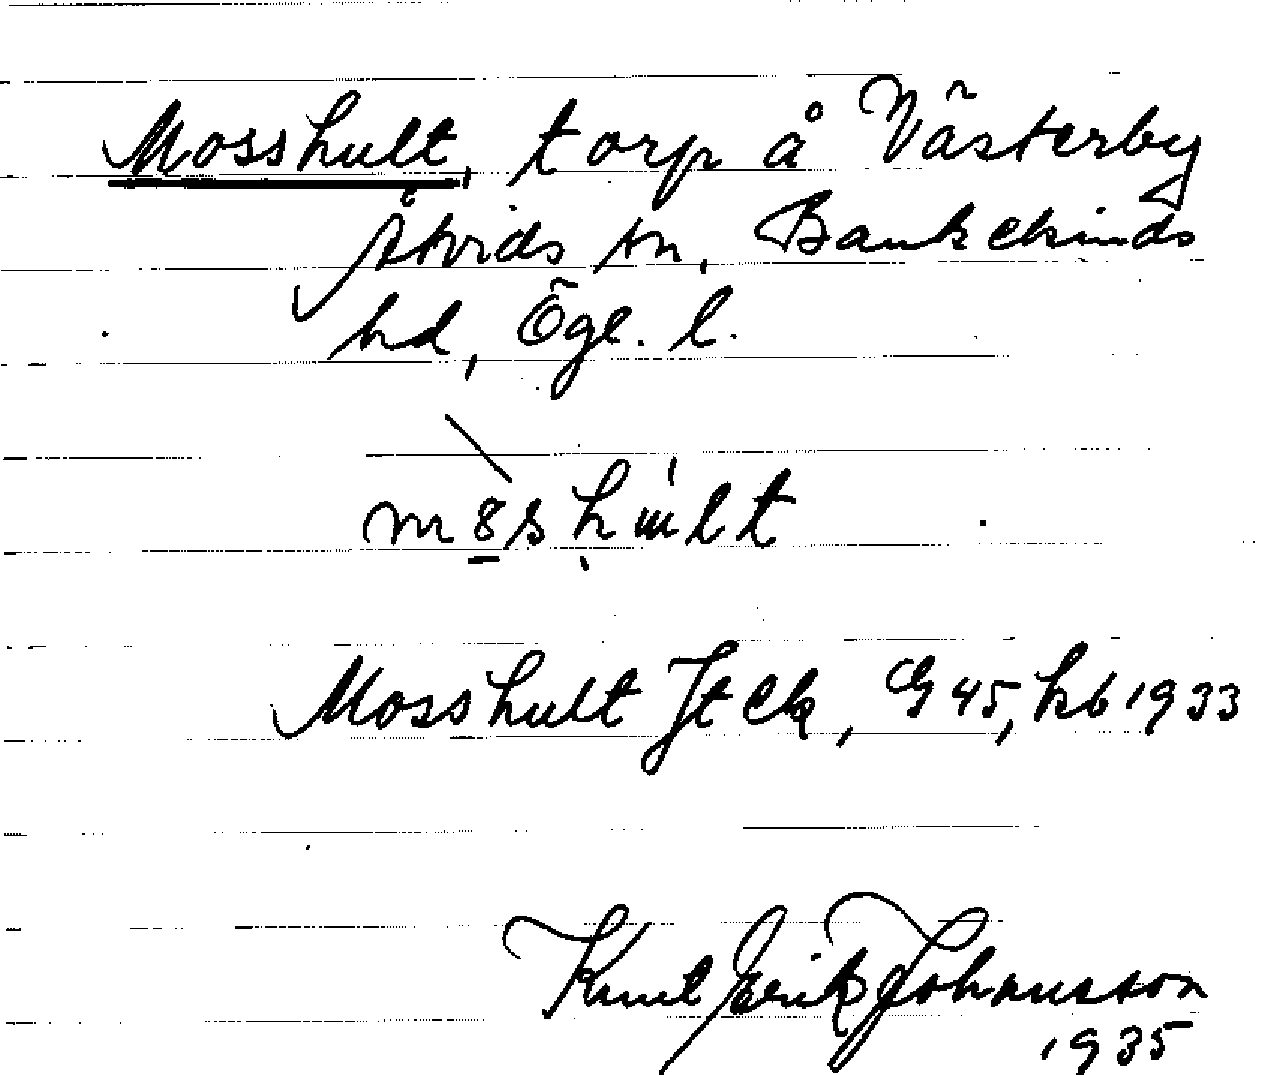 Mosshult, torp å Västerby
Åtvids sn, Bankekinds
hd, Ögl. l.
Mosshult Jt Ek, G 45, kb 1933
Knut Erik Johansson
1935